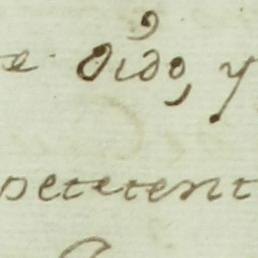 e oido, y
petetent